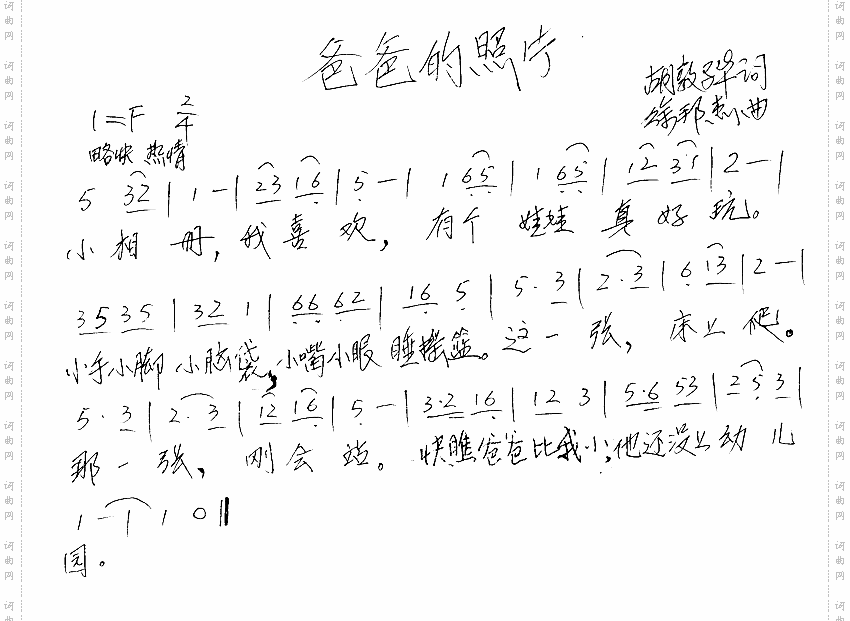 爸爸的照片
胡敦骅词
1=F 2/4
徐邦杰曲
略快 热情
5 32 | 1 - | 23 16 | 5 - | 1 65 | 1 65 | 12 31 | 2 - |
小相册，我喜欢，有个娃娃真好玩。
35 35 | 32 1 | 66 62 | 16 5 | 5· 3 | 2· 3 | 6 13 | 2 - |
小手小脚小脑袋，小嘴小眼睡摇篮。这一张，床上爬。
5· 3 | 2· 3 | 12 16 | 5 - | 3·2 16 | 12 3 | 5·6 53 | 25 3 |
那一张，刚会站。快瞧爸爸比我小，他还没上幼儿
1 - | 1 0 ‖
园。
词曲网